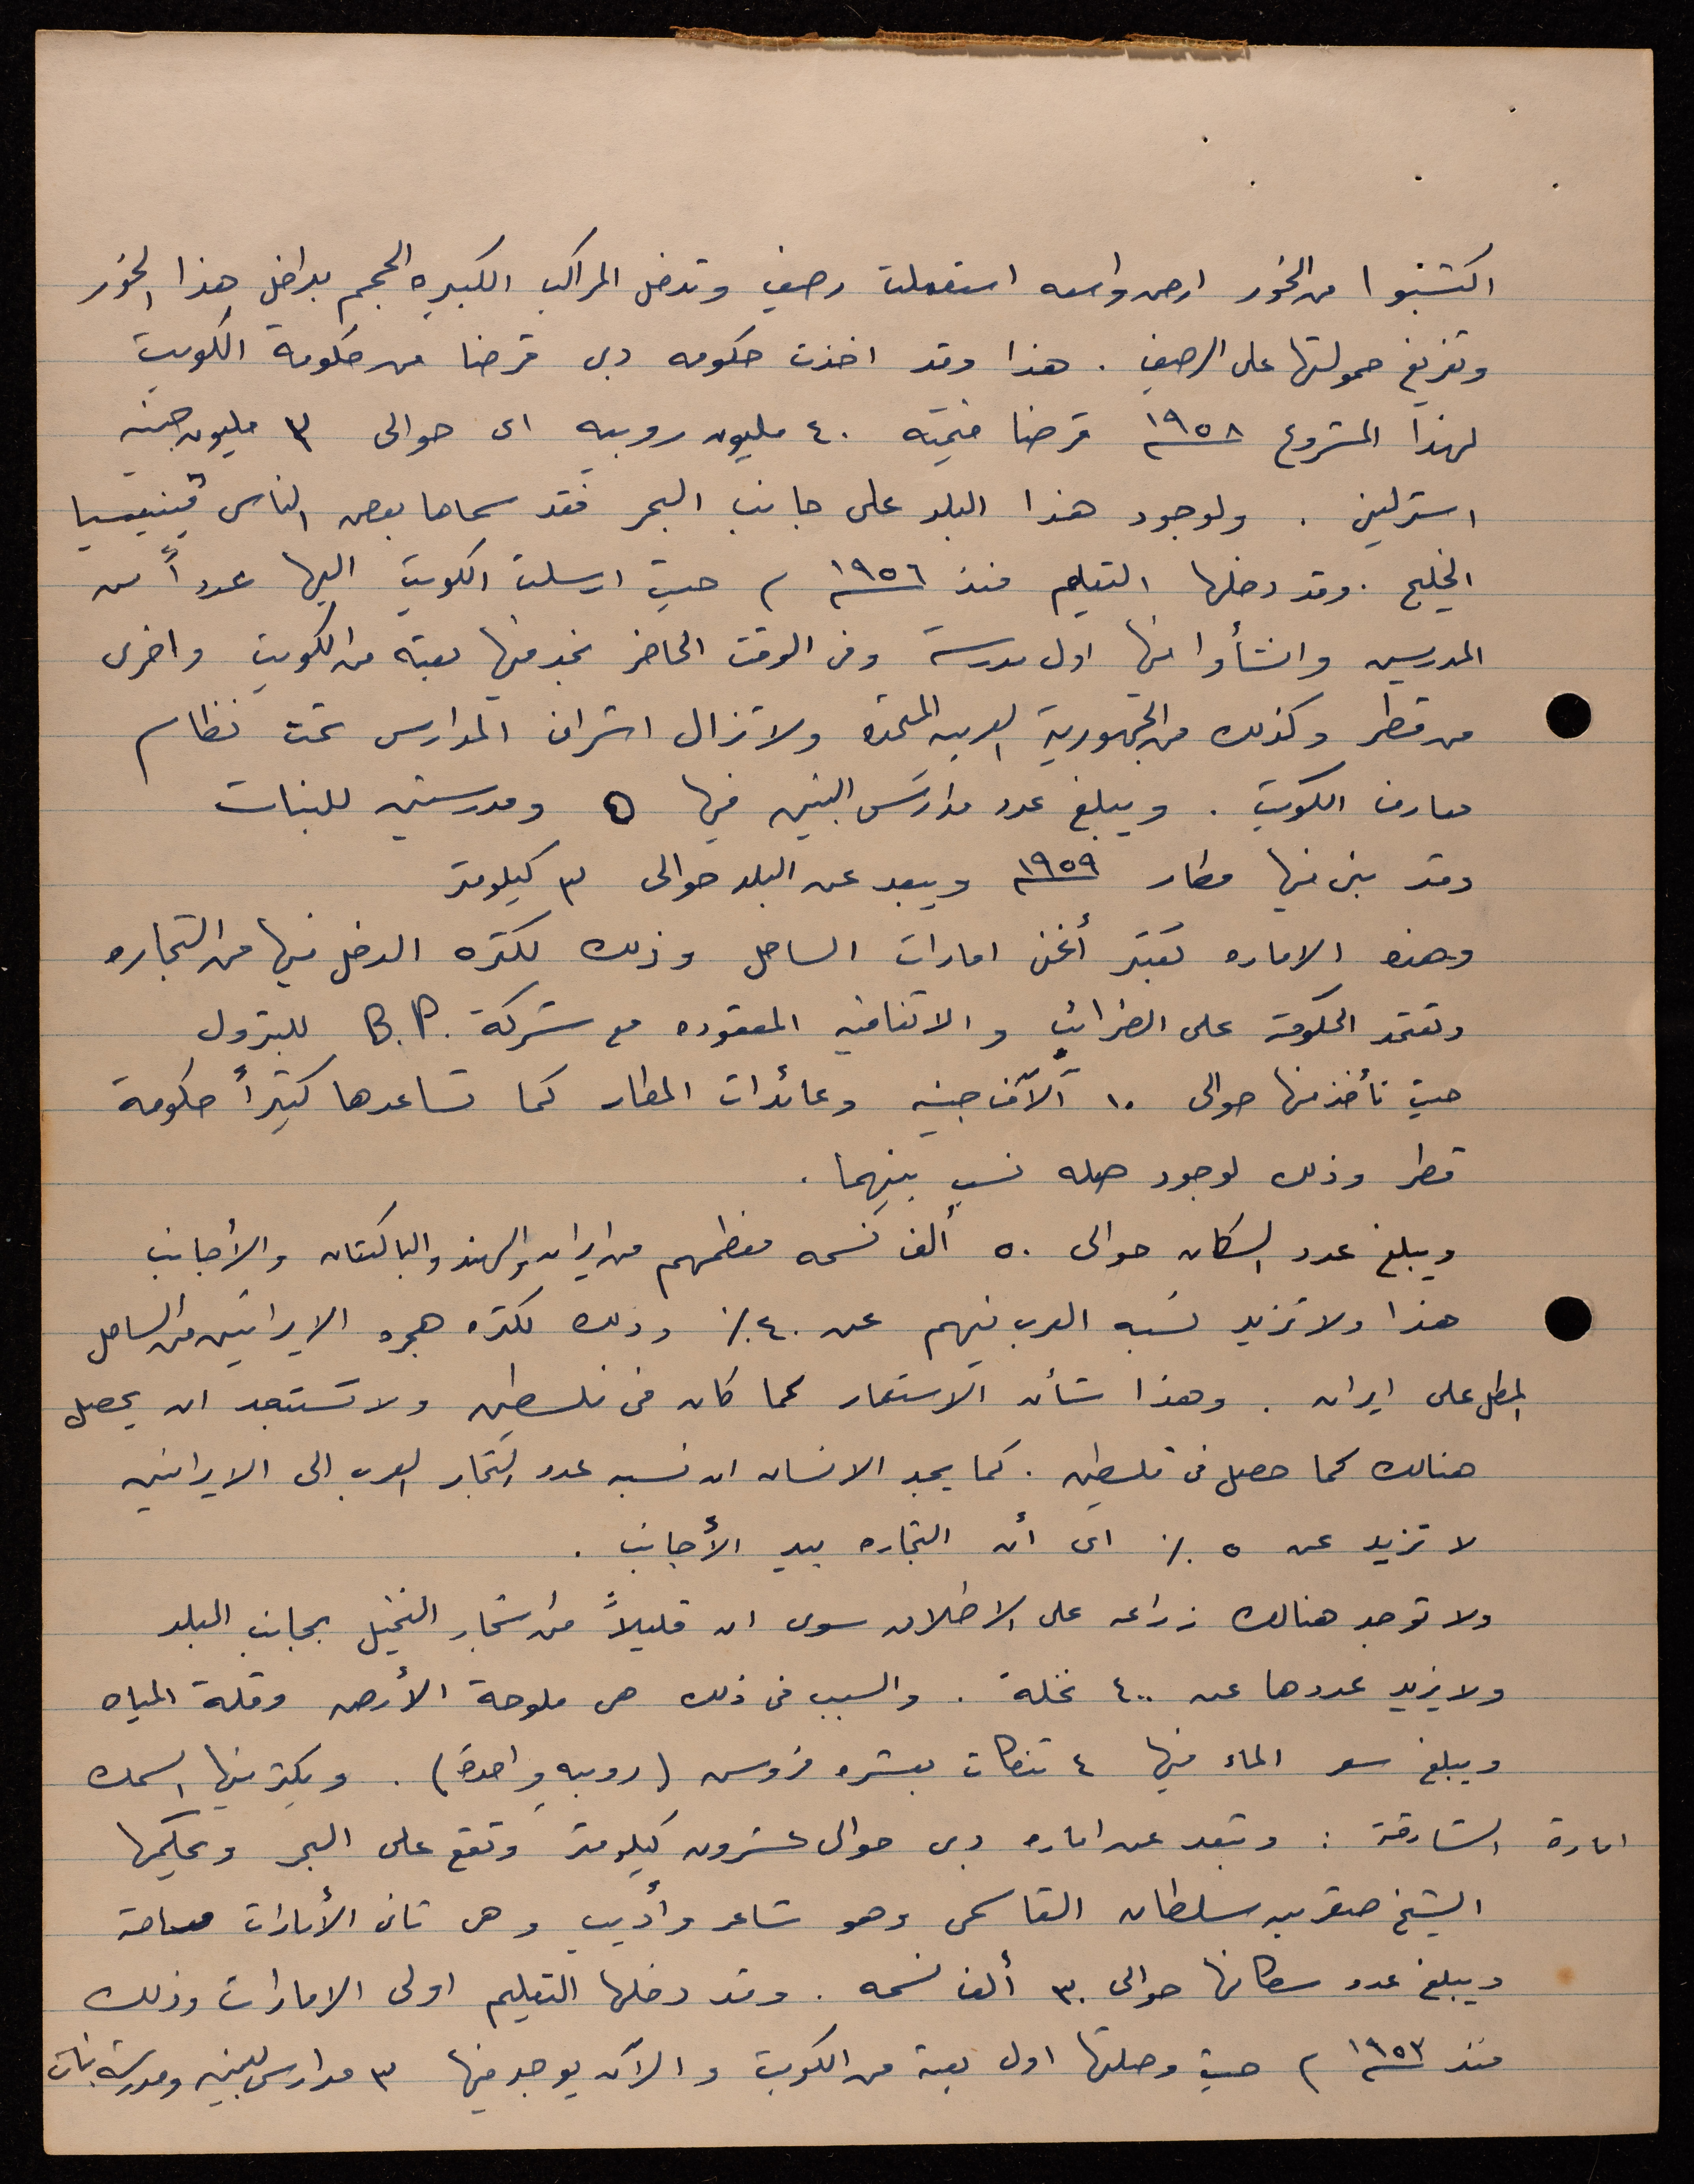 اكتسبوا من الخور ارض واسعه استعملت رصيف وتدخل المراكب الكبيره الحجم بداخل هذا الخور
وتفريغ حمولتها على الرصيف . هذا وقد اخذت حكومه دبى قرضا من حكومة الكويت
لهذا المشروع ١٩٥٨م قرضا قيمته ٤٠ مليون روبيه اى حوالى ٣ مليون جنيه
استرلينى . ولوجود هذا البلد على جانب البحر فقد سماها بعض الناس ڤينيسيا
الخليج . وقد دخلها التعليم منذ ١٩٥٦م حيث ارسلت الكويت اليها عدداً من
المدرسين وانشأوا فيها اول مدرسة وفى الوقت الحاضر نجد فيها بعثه من الكويت واخرى
من قطر وكذلك من الجمهورية العربيه المتحده ولا تزال اشراف المدارس تحت نظام
معارف الكويت . ويبلغ عدد مدارس البنين فيها ٥ ومدرستين للبنات
وقد بنى فيها مطار ١٩٥٩م ويبعد عن البلد حوالى ٣ كيلومتر
وهذه الاماره تعتبر أغنى امارات الساحل وذلك لكثره الدخل فيها من التجاره
وتعتمد الحكومة على الضرائب والاتفاقيه المعقوده مع شركة B.P. للبترول
حيث تأخذ منها حوالى ١٠ آلآف جنيه وعائدات المطار كما تساعدها كثيراً حكومة
قطر وذلك لوجود صله نسب بينهما .
ويبلغ عدد السكان حوالى ٥٠ ألف نسمه معظمهم من ايران والهند والباكستان والأجانب
هذا ولا تزيد نسبه العرب فيهم عن ٤٠٪ وذلك لكثره هجره الايرانيين من الساحل
المطل على ايران . وهذا شأن الاستعمار كما كان فى فلسطين ولا تستبعد ان يحصل
هنالك كما حصل فى فلسطين . كما يجد الانسان ان نسبه عدد التجار العرب الى الايرانيين
لا تزيد عن ٥٪ اى أن التجاره بيد الأجانب .
ولا توجد هنالك زراعه على الاطلاق سوى ان قليلاً من اشجار النخيل بجانب البلد
ولا يزيد عددها عن ٤٠٠ نخلة . والسبب فى ذلك هى ملوحة الأرض وقلة المياه
ويبلغ سعر الماء فيها ٤ تنكات بعشره قروس (روبيه واحدة) . ويكثر فيها السمك
امارة الشارقة : وتبعد عن اماره دبى حوالى عشرون كيلومتر وتقع على البحر ويحكمها
الشيخ صقر بن سلطان القاسمى وهو شاعر وأديب وهى ثانى الأمارات مساحة
ويبلغ عدد سكانها حوالى ٣٠ ألف نسمه . وقد دخلها التعليم اولى الامارات وذلك
منذ ١٩٥٣م حيث وصلتها اول بعثة من الكويت والآن يوجد فيها ٣ مدارس للبنين ومدرسة بنات